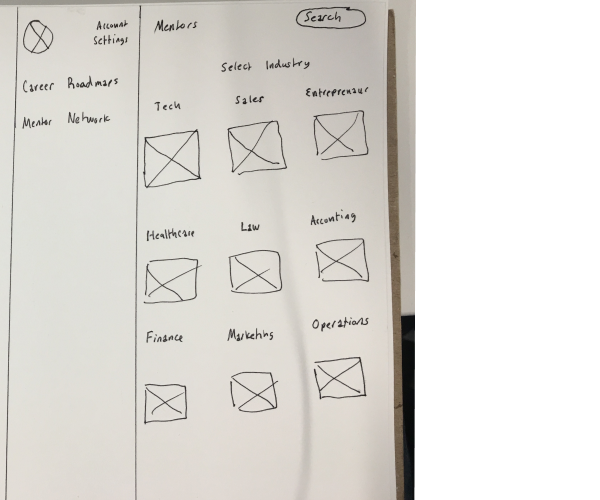 Account
Settings
Career Roadmaps
Mentor Network
Mentors
Search
Select Industry
Tech
Sales
Entrepreneur
Healthcare
Law
Accounting
Finance
Marketing
Operations